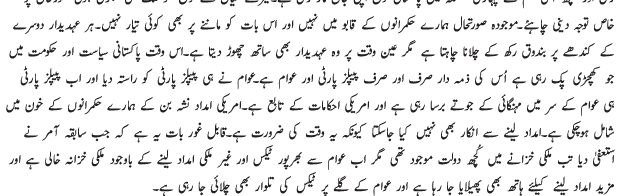 خاص توجہ دینی چاہئے۔موجودہ صورتحال ہمارے حکمرانوں کے قابو میں نہیں اور اس بات کو ماننے پر بھی کوئی تیار نہیں۔ہر عہدیدار دوسرے
کے کندھے پر بندوق رکھ کے چلانا چاہتا ہے مگر عین وقت پر وہ عہدیدار بھی ساتھ چھوڑ دیتا ہے۔اس وقت پاکستانی سیاست اور حکومت میں
جو کھچڑی پک رہی ہے اُس کی ذمہ دار صرف اور صرف پیپلز پارٹی اور عوام ہے۔عوام نے ہی پیپلز پارٹی کو راستہ دیا اور اب پیپلز پارٹی
ہی عوام کے سر میں مہنگائی کے جوتے برسا رہی ہے اور امریکی احکامات کے تابع ہے۔امریکی امداد نشہ بن کے ہمارے حکمرانوں کے خون میں
شامل ہوچکی ہے۔امداد لینے سے انکار بھی نہیں کیا جاسکتا کیونکہ یہ وقت کی ضرورت ہے۔قابل غور بات یہ ہے کہ جب سابقہ آمر نے
استعفیٰ دیا تب ملکی خزانے میں کُچھ دولت موجود تھی مگر اب عوام سے بھرپور ٹیکس اور غیر ملکی امداد لینے کے باوجود ملکی خزانہ خالی ہے اور
مزید امداد لینے کیلئے ہاتھ بھی پھیلایا جا رہا ہے اور عوام کے گلے پر ٹیکس کی تلوار بھی چلائی جا رہی ہے۔